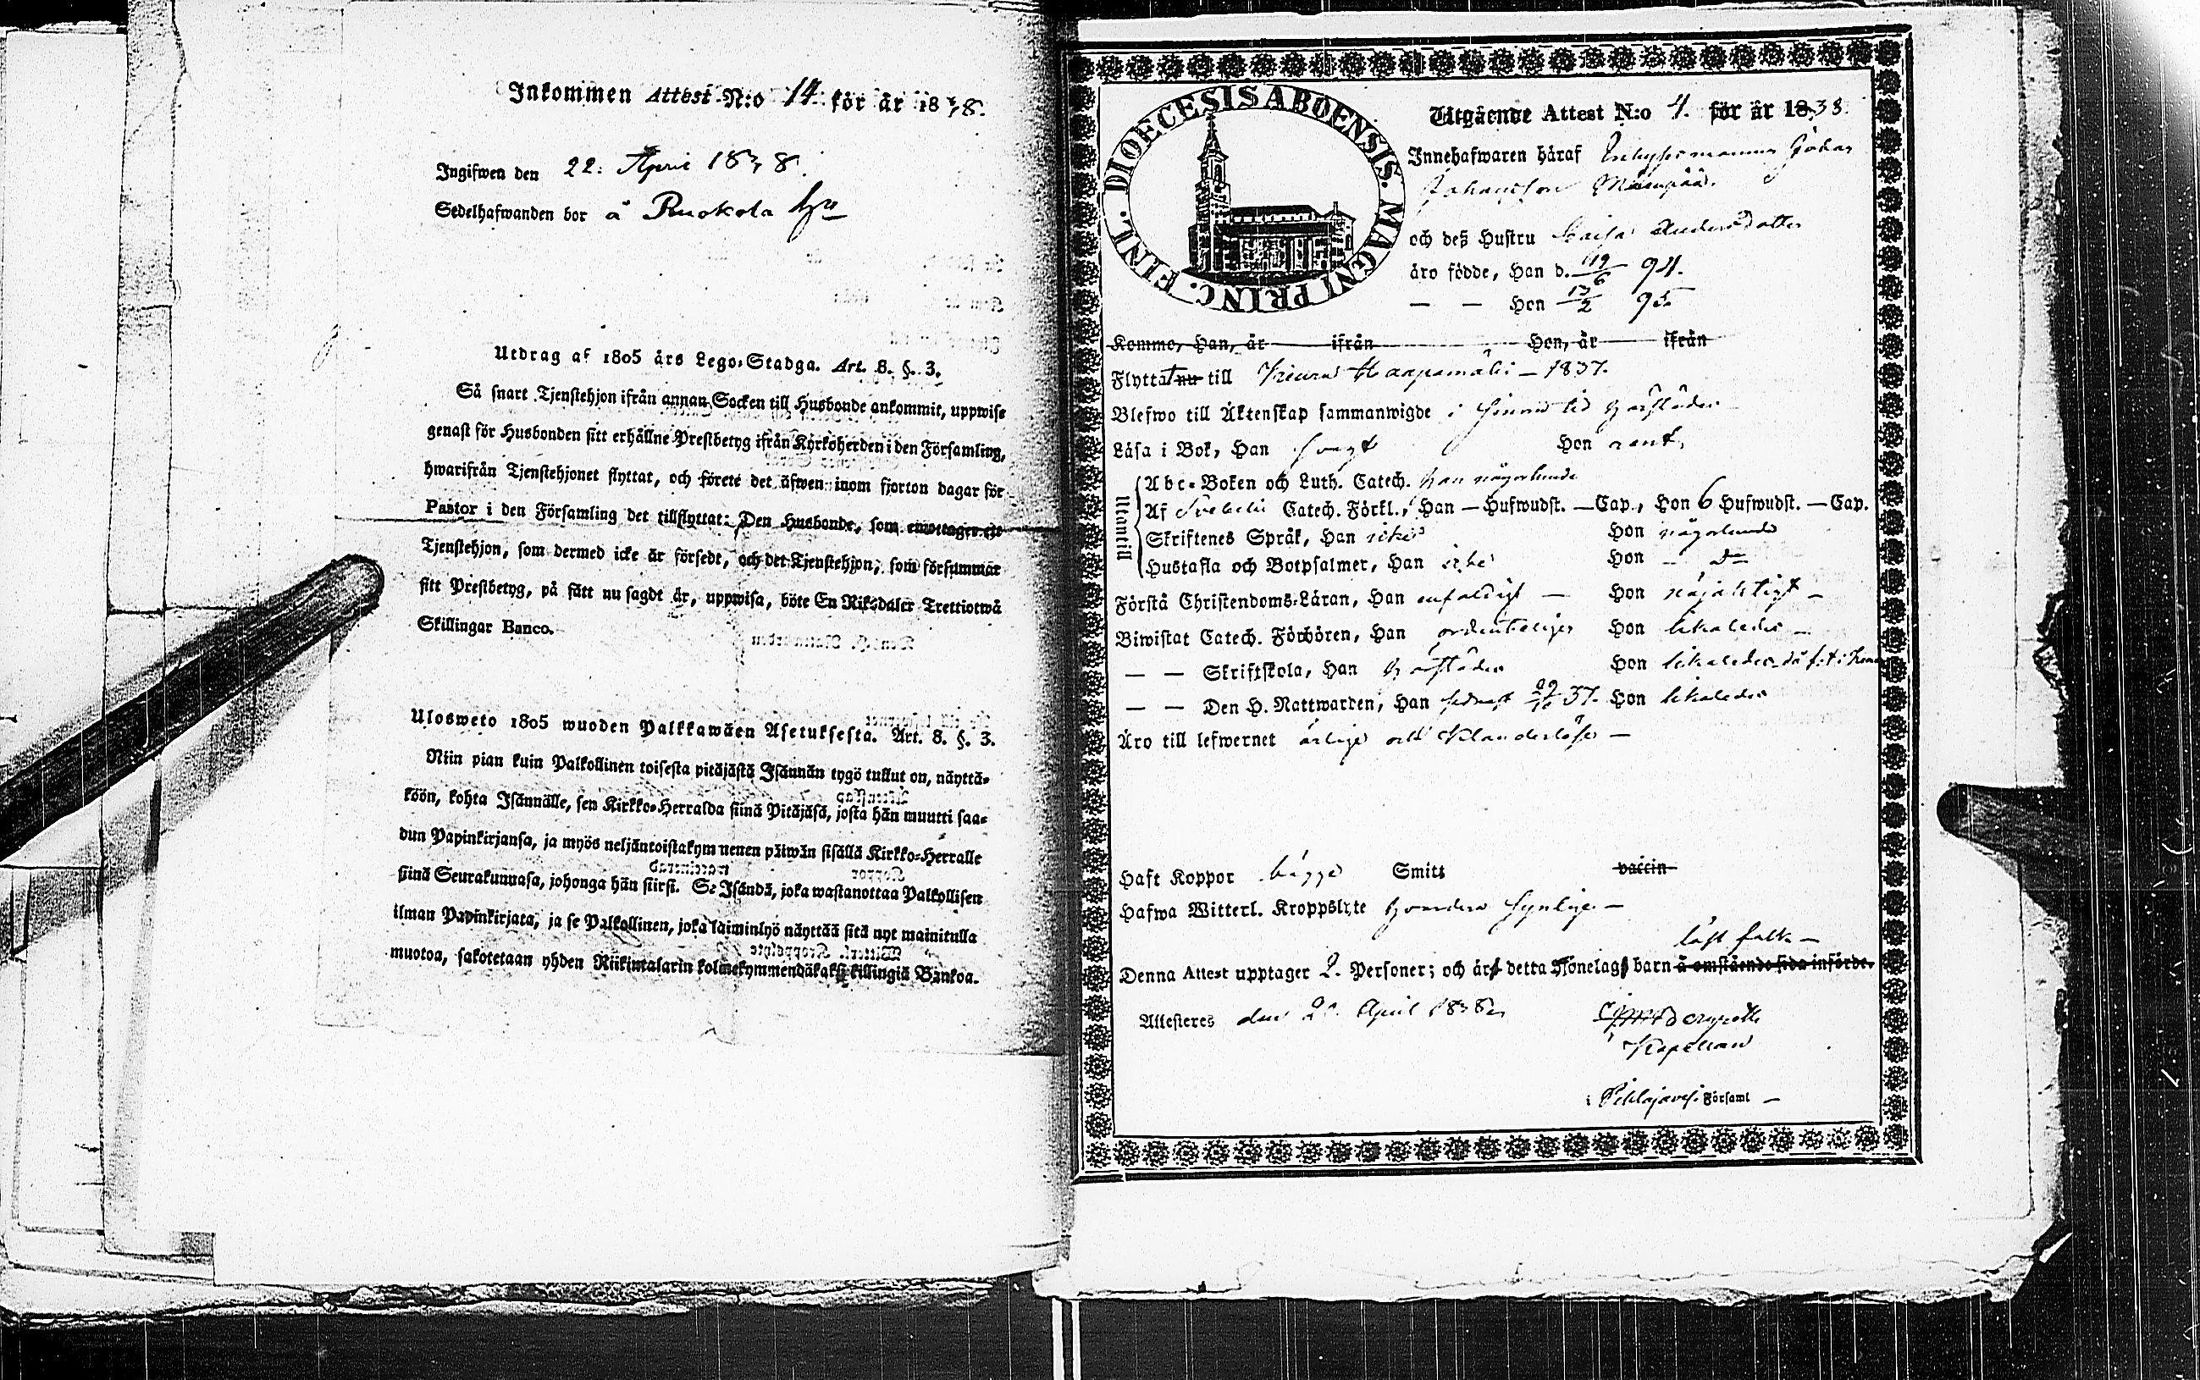 Inkommen Attest N:o 14. för år 1838.
Ingifwen den 22. April 1838.
Sedelhafwanden bor å Ruokola
Utdrag af 1805 års Lego-Stadga. Art. 8. §. 3.
Så snart Tjenstehjon ifrån annan Socken till Husbonde ankommit, uppwise
genast för Husbonden sitt erhållne Prestbetyg ifrån Kyrkoherden i den Församling,
hwarifrån Tjenstehjonet flyttat, och förete det äfwen inom fjorton dagar för
Pastor i den Församling det tillflyttat: Den Husbonde, som emottager ett
Tjenstehjon, som dermed icke är försedt, och det Tjenstehjon, som försummar
sitt Prestbetyg, på sätt nu sagdt är, uppwisa, böte En Riksdaler Trettiotwå
Skillingar Banco.
Ulosweto 1805 wuoden Palkkawäen Asetuksesta. Art. 8. §. 3.
Niin pian kuin Palkollinen toisesta pitäjästä Isännän tygö tullut on, näyttä-
köön, kohta Isännälle, sen Kirkko-Herralda siinä Pitäjäsä, josta hän muutti saa-
dun Papinkirjansa, ja myös neljäntoistakymmenen päiwän sisällä Kirkko-Herralle
siinä Seurakunnasa, johonga hän siirsi. Se Isändä, joka wastanottaa Palkollisen
ilman Papinkirjata, ja se Palkollinen, joka laiminlyö näyttää sitä nyt mainitulla
muotoa, sakotetaan yhden Riikintalarin kolmekymmendäkaksi killingiä Bankoa.
DIOECESIS ABOENSIS. MAGNI PRINC. FINL.
Utgående Attest N:o 4. för år 1838.
Innehafwaren häraf Göran
Johansson
och deß Hustru Caisa Andersdotter
äro födde, Han d. 19/6 94.
— — Hon 13/2 95
Komme, Han, år ifrån Hon, år ifrån
Flyttat nu till Haapamäki — 1837.
Blefwo till Äktenskap sammanwigde i sinom tid härstädes
Läsa i Bok, Han swagt Hon rent,
Utantill
Abc-Boken och Luth. Catech. han någorlunda
Af Svebelii Catech. Förkl., Han — Hufwudst. — Cap., Hon 6 Hufwudst. — Cap.
Skriftenes Språk, Han icke Hon någorlunda
Hustafla och Botpsalmer, Han icke Hon — d°
Förstå Christendoms-Läran, Han enfaldigt — Hon nöjaktigt —
Biwistat Catech. Förhören, Han ordenteligen Hon likaledes —
— — Skriftskola, Han härstädes Hon likaledes
— — Den H. Nattwarden, Han sednast 37. Hon likaledes
Äro till lefwernet ärlige och klanderlöse —
Haft Koppor bägge Smitt vaccin
Hafwa Witterl. Kroppslyte synlige —
löst folk —
Denna Attest upptager 2. Personer; och äro detta Hionelags barn å omstående sida införde.
Attesteres den April 1838
Kapellan
i Pihlajavesi Församl —